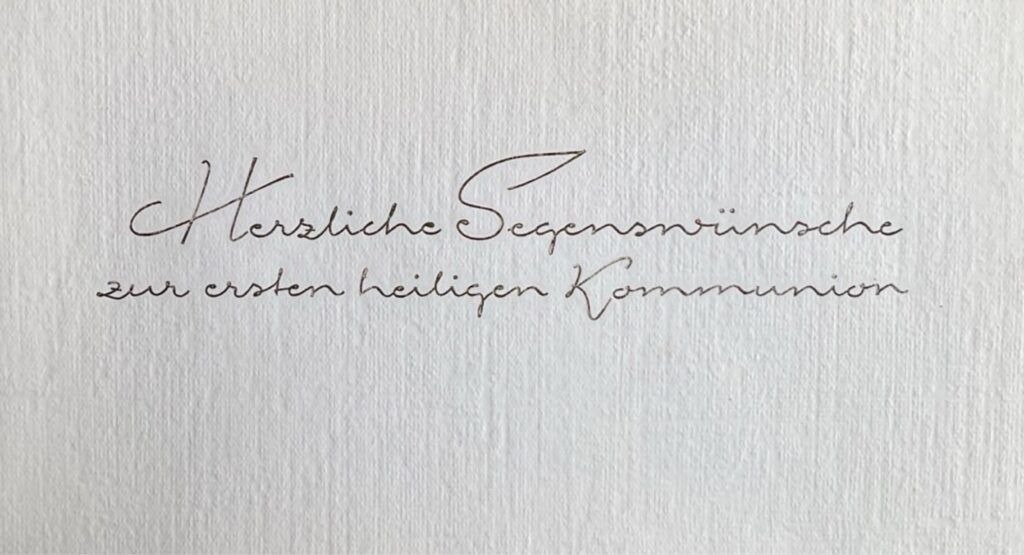 Herzliche Segenswünsche
zur ersten heiligen Kommunion